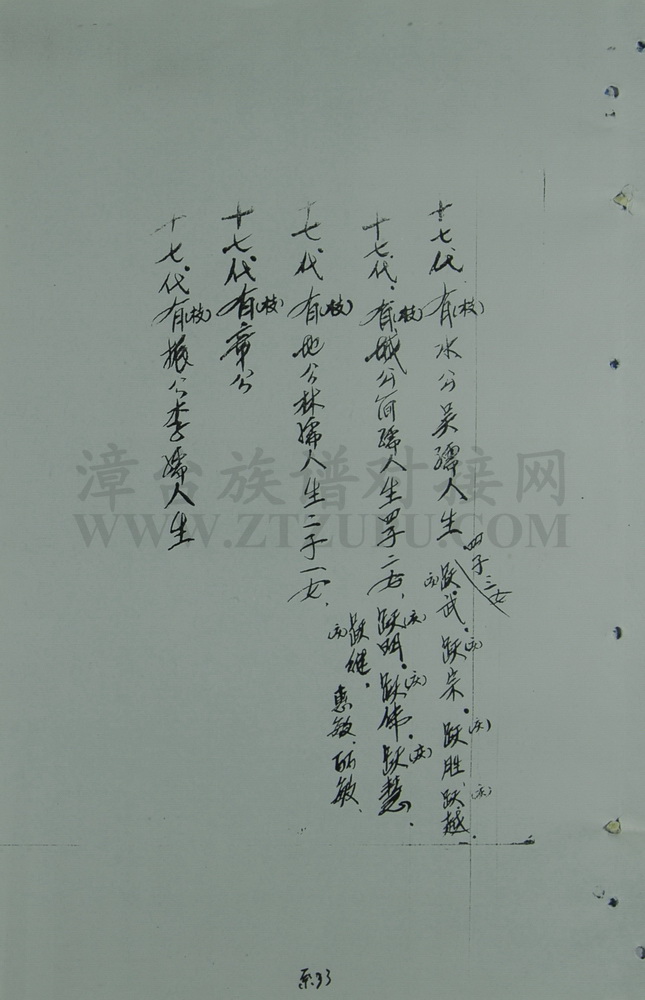 十七代有(枝)水公吴孺人生四子二女
跃(庆)武.跃(庆)宗.跃(庆)胜.跃(庆)越.
十七代.有(枝)城公简孺人生四子二女.跃(庆)明.跃(庆)伟.跃(庆)慧.
跃(庆)继.惠敏.丽敏.
十七代有(枝)地公林孺人生二子一女.
十七代有(枝)章公
十七代有(枝)振公李孺人生
漳台族谱对接网
WWW.ZTZUPU.COM
系33